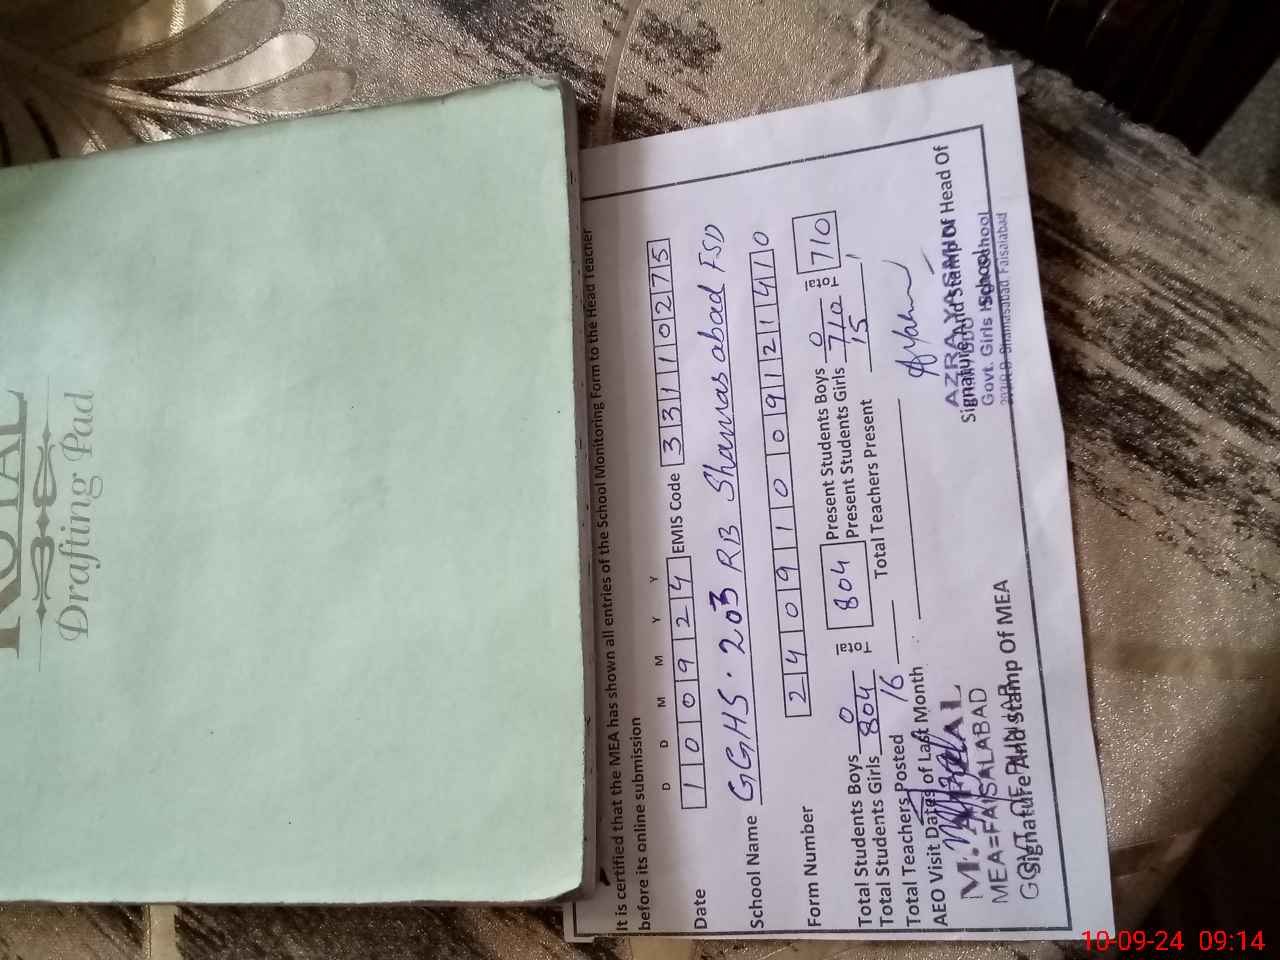 ROYAL
Drafting Pad
It is certified that the MEA has shown all entries of the School Monitoring Form to the Head Teacher
before its online submission
D D M M Y Y
Date 1 0 0 9 2 4 EMIS Code 3 3 1 1 0 2 7 5
School Name GGHS. 203 RB Shamasabad FSD
Form Number 2 4 0 9 1 0 0 9 1 2 1 4 1 0
Total Students Boys 0 Present Students Boys 0
Total Students Girls 804 804 Present Students Girls 710 710
Total Teachers Posted 16 Total Teachers Present 15
AEO Visit Dates of Last Month
M. AFZAL
MEA=FAISALABAD
GOVT OF PUNJAB
Signature And Stamp Of MEA
AZRA YASMIN
Signature And Stamp Of Head Of
School
Govt. Girls High School
203/R.B. Shamasabad, Faisalabad
10-09-24 09:14